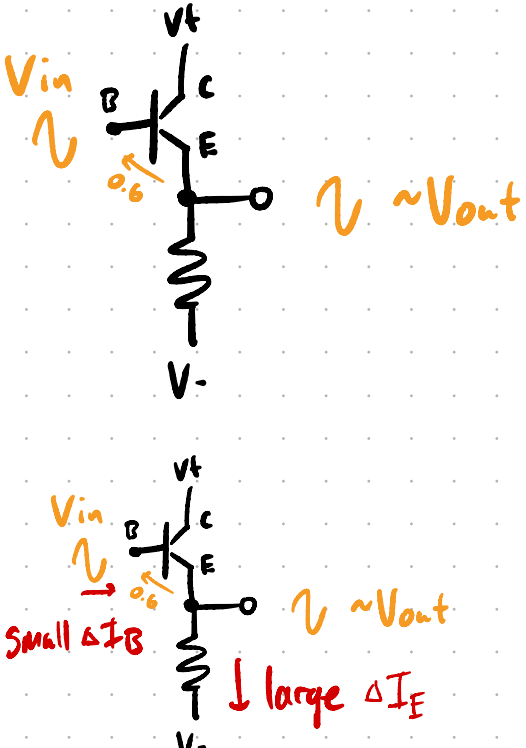 V+
Vin
B
C
E
0.6
~Vout
V-
V+
Vin
B
C
E
0.6
~Vout
small ΔIB
large ΔIE
V-